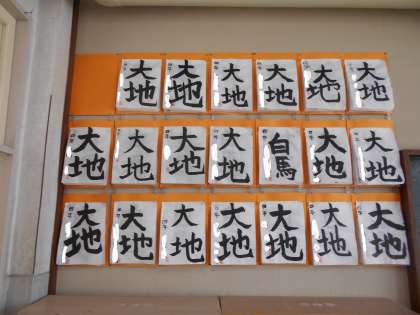 大地
大地
大地
大地
大地
大地
大地
大地
大地
大地
白馬
大地
大地
大地
大地
大地
大地
大地
大地
大地